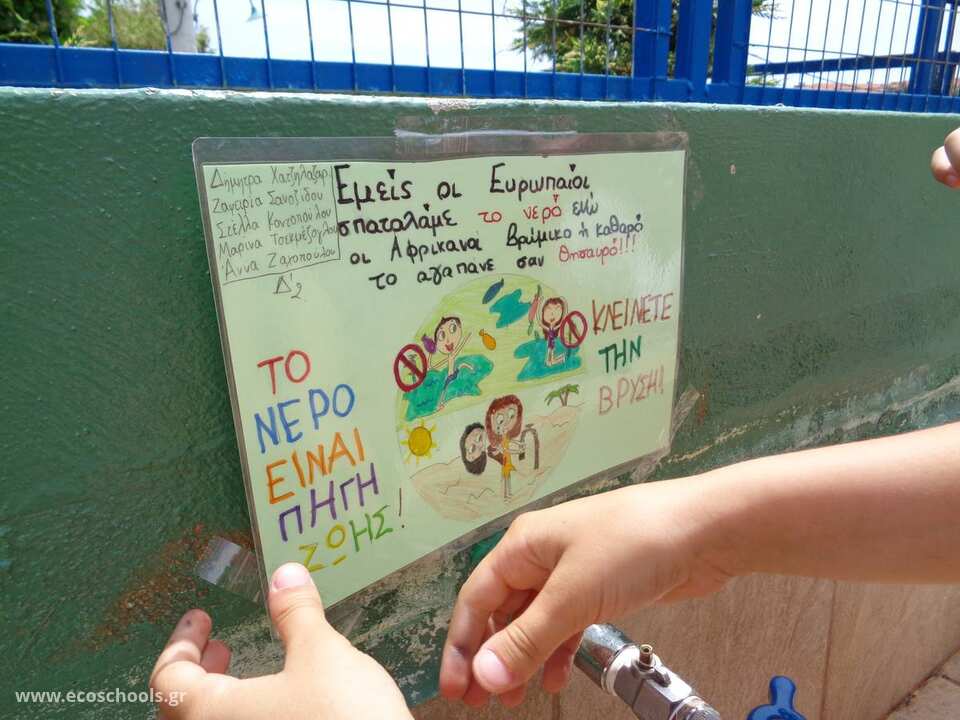 Δήμητρα Χατζηλαζαρι
Ζαφειρία Σανοζίδου
Στέλλα Κοντοπούλου
Μαρινα Τσεκμέζογλου
Άννα Ζαχοπούλου
Δ'2
Εμείς οι Ευρωπαίοι
σπαταλάμε το νερό ενώ
οι Αφρικανοί βρώμικο ή καθαρό
το αγαπανε σαν θησαυρό!!!
ΤΟ
ΝΕΡΟ
ΕΙΝΑΙ
ΠΗΓΗ
ΖΩΗΣ!
ΚΛΕΙΝΕΤΕ
ΤΗΝ
ΒΡΥΣΗ!
www.ecoschools.gr